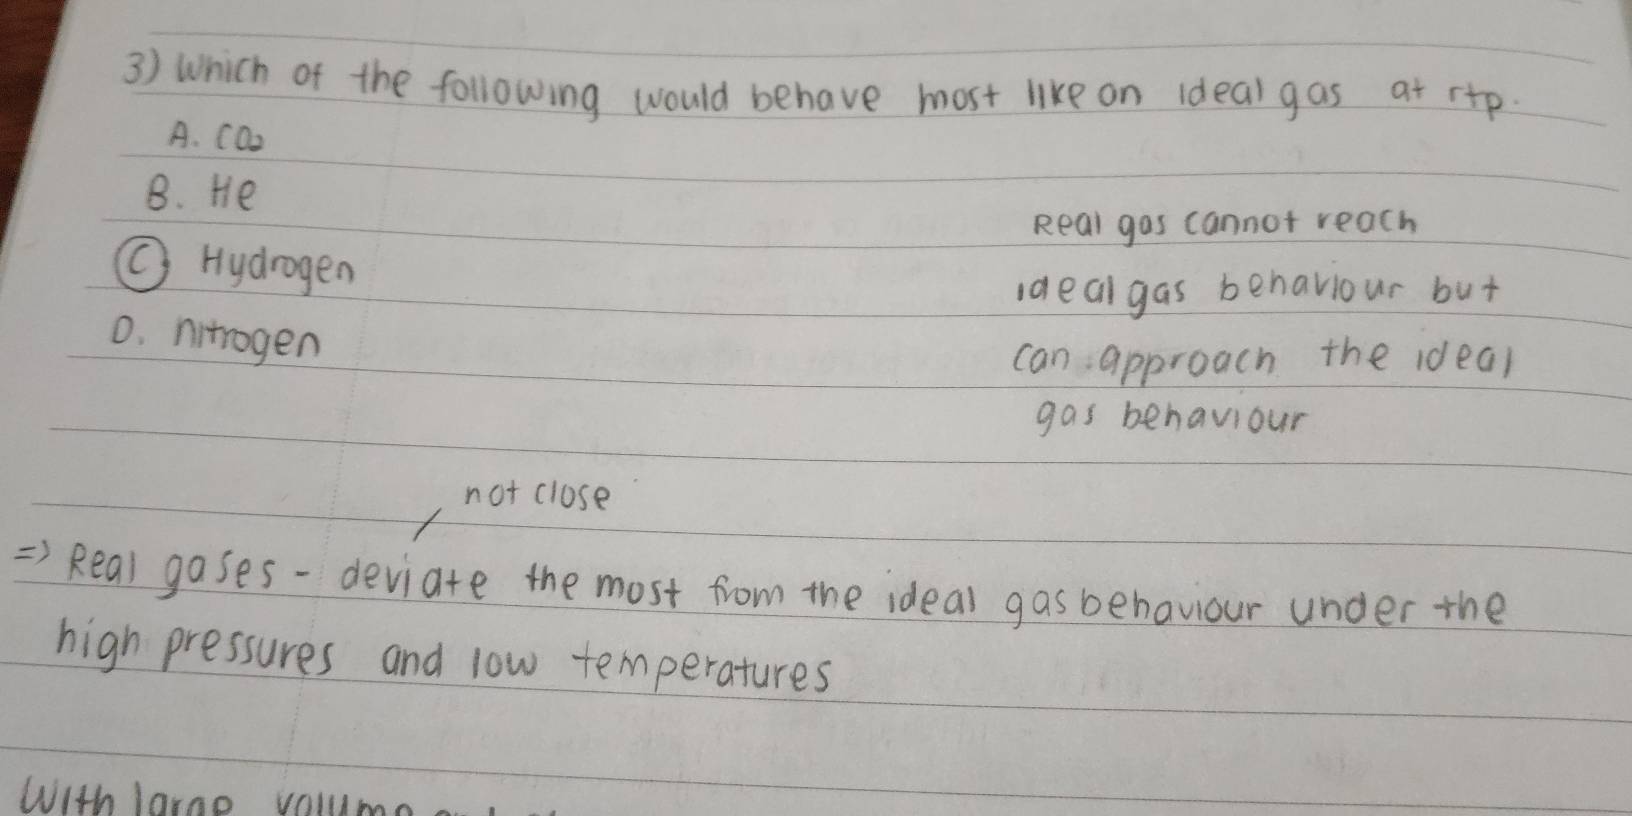 3) Which of the following would behave most like an ideal gas at rtp.
A. CO₂
B. He
C) Hydrogen
D. nitrogen
Real gas cannot reach
ideal gas behaviour but
can approach the ideal
gas behaviour
not close
=> Real gases - deviate the most from the ideal gas behaviour under the
high pressures and low temperatures
With large volume